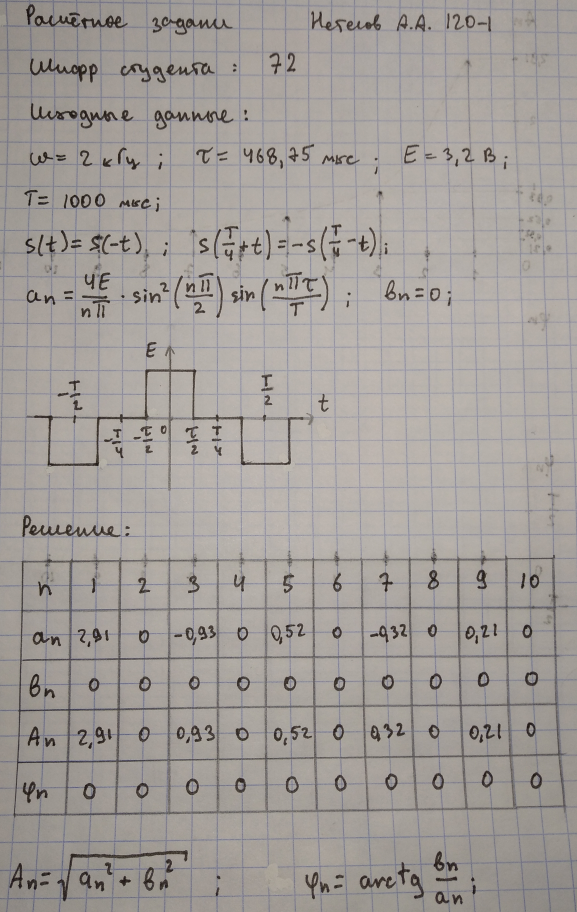 Расчётное задани Нетесов А.А. 120-1
Шифр студента: 72
Исходные данные:
ω = 2 кГц; τ = 468,75 мкс; E = 3,2 В;
T = 1000 мкс;
s(t) = s(-t); s(T/4 + t) = -s(T/4 - t);
an = 4E/nπ · sin²(nπ/2) sin(nπτ/T); bn = 0;
E
-T/2 T/2 t
-T/4 -τ/2 0 τ/2 T/4
Решение:
n 1 2 3 4 5 6 7 8 9 10
an 2,91 0 -0,93 0 0,52 0 -0,32 0 0,21 0
bn 0 0 0 0 0 0 0 0 0 0
An 2,91 0 0,93 0 0,52 0 0,32 0 0,21 0
φn 0 0 0 0 0 0 0 0 0 0
An = √(an² + bn²); φn = arctg bn/an;